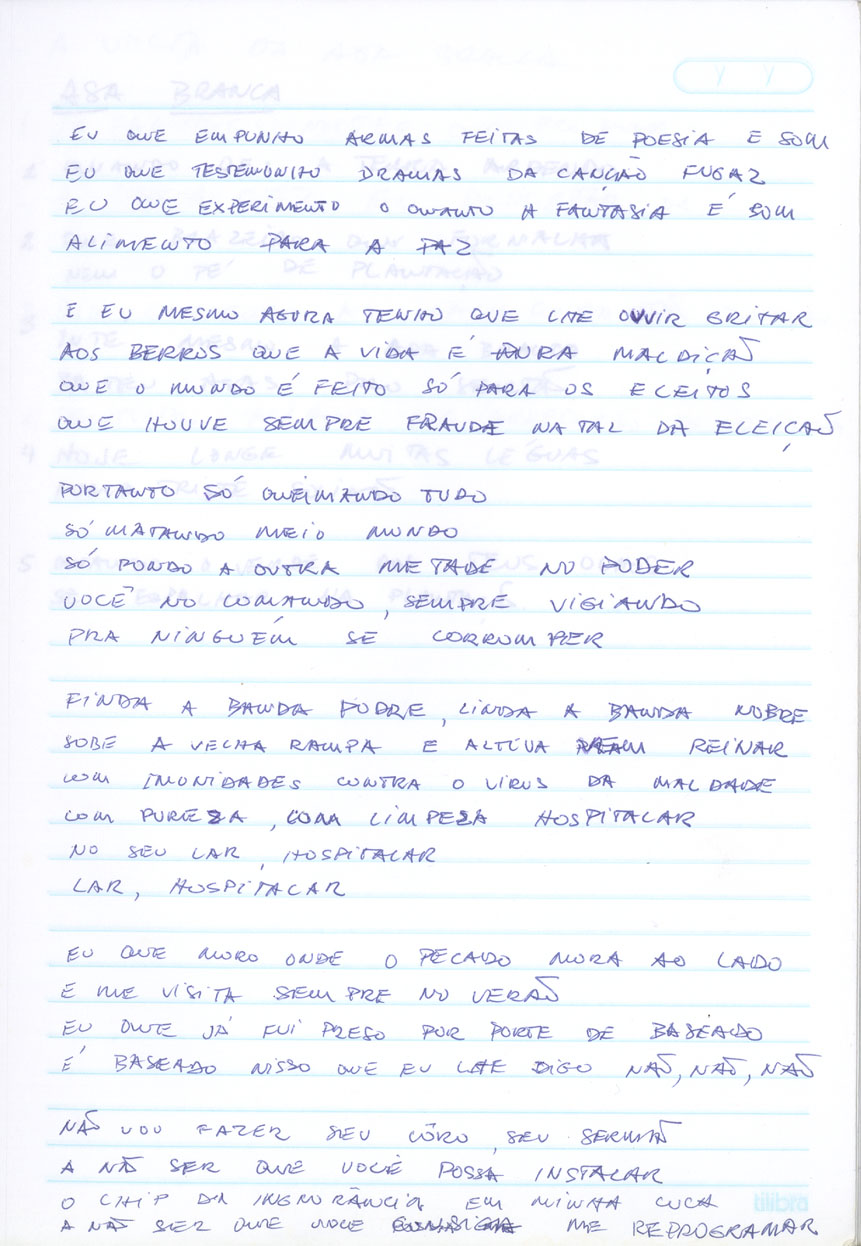 ASA BRANCA
EU QUE EMPUNHO ARMAS FEITAS DE POESIA E SOM
EU QUE TESTEMUNHO DRAMAS DA CANÇÃO FUGAZ
EU QUE EXPERIMENTO O QUANTO A FANTASIA É BOM
ALIMENTO PARA A PAZ
E EU MESMO AGORA TENHO QUE LHE OUVIR GRITAR
AOS BERROS QUE A VIDA É DURA MALDIÇÃO
QUE O MUNDO É FEITO SÓ PARA OS ELEITOS
QUE HOUVE SEMPRE FRAUDE NA TAL DA ELEIÇÃO
PORTANTO SÓ QUEIMANDO TUDO
SÓ MATANDO MEIO MUNDO
SÓ PONDO A OUTRA METADE NO PODER
VOCÊ NO COMANDO, SEMPRE VIGIANDO
PRA NINGUÉM SE CORROMPER
FINDA A BANDA PODRE, LINDA A BANDA NOBRE
SOBE A VELHA RAMPA E ALTIVA REINAR
COM IMUNIDADES CONTRA O VIRUS DA MALDADE
COM PUREZA, COM LIMPEZA HOSPITALAR
NO SEU LAR, HOSPITALAR
LAR, HOSPITALAR
EU QUE MORO ONDE O PECADO MORA AO LADO
E ME VISITA SEMPRE NO VERÃO
EU QUE JÁ FUI PRESO POR PORTE DE BASEADO
É BASEADO NISSO QUE EU LHE DIGO NÃO, NÃO, NÃO
NÃO VOU FAZER SEU CÔRO, SEU SERMÃO
A NÃO SER QUE VOCÊ POSSA INSTALAR
O CHIP DA IGNORÂNCIA EM MINHA CUCA
A NÃO SER QUE VOCE CONSIGA ME REPROGRAMAR
tilibra